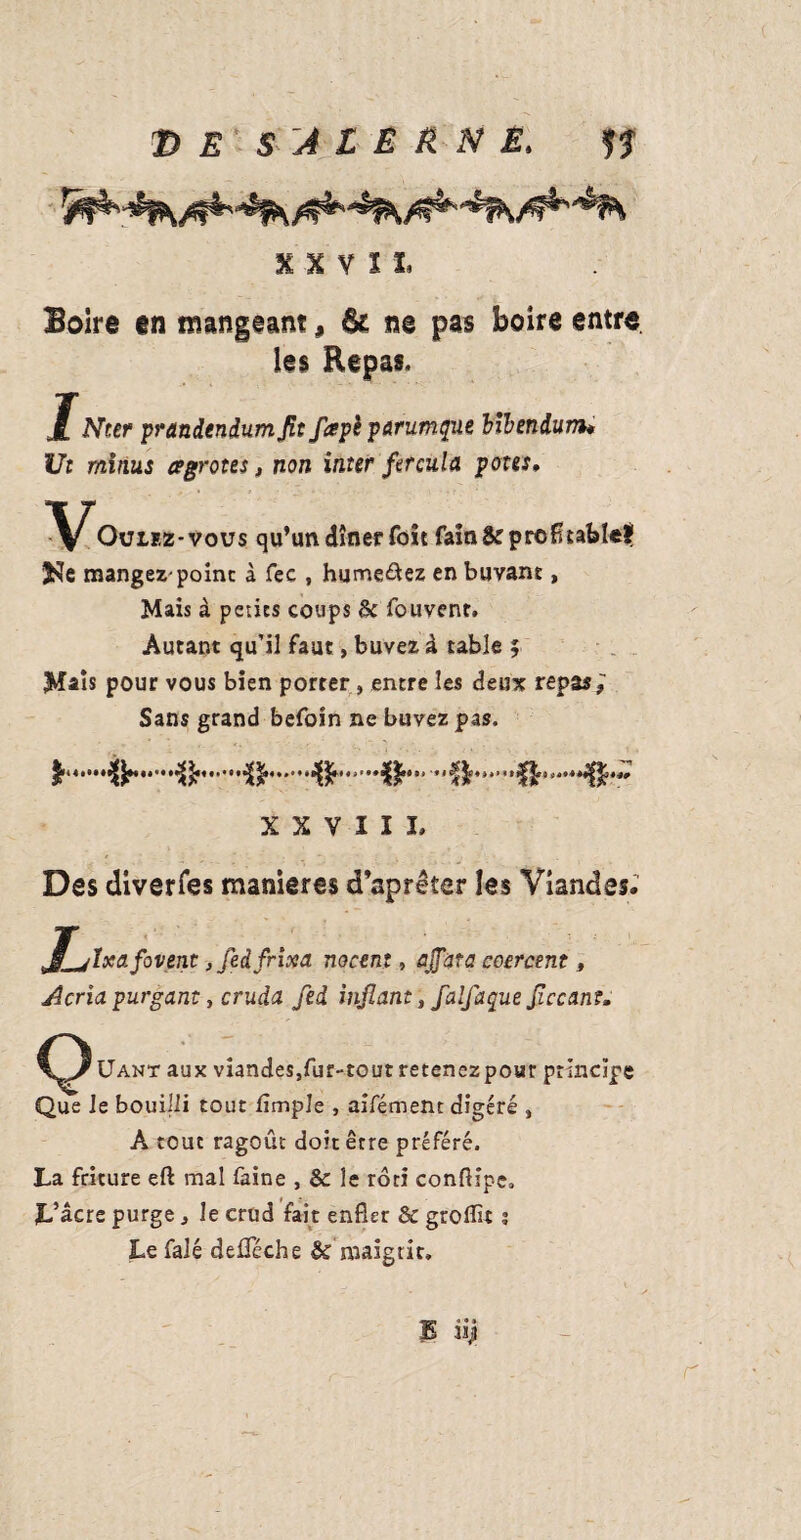 DE SALERNE. 53
XXVII.
Boire en mangeant, & ne pas boire entre
les Repas.
INter prandendum sit sæpè parumque bibendum.
Ut minus ægrotes, non inter fercula potes.
VOULEZ-VOUS qu'un dîner soit sain & profitable?
Ne mangez point à sec, humectez en buvant,
Mais à petits coups & souvent.
Autant qu'il faut, buvez à table ;
Mais pour vous bien porter, entre les deux repas,
Sans grand besoin ne buvez pas.
XXVIII.
Des diverses manieres d'aprêter les Viandes.
LIxa fovent, sed frixa nocent, assata coercent,
Acria purgant, cruda sed inflant, salsaque siccant.
QUANT aux viandes, sur-tout retenez pour principe
Que le bouilli tout simple, aisément digéré,
A tout ragoût doit être préféré.
La friture est mal saine, & le rôti constipe.
L'âcre purge, le crud fait enfler & grossit ;
Le salé desséche & maigrit.
E iij